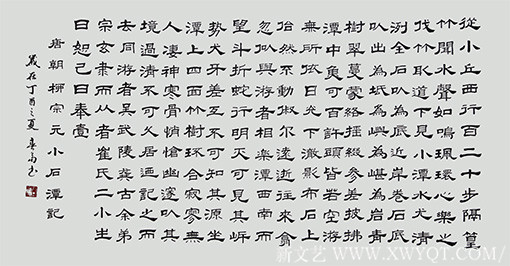 從小丘西行百二十步隔篁
竹聞水聲如鳴珮環心樂之
伐竹取道下見小潭水尤清
洌全石以為底近岸卷石底
以出為坻為嶼為嵁為岩青
樹翠蔓蒙絡搖綴參差披拂
潭中魚可百許頭皆若空游
無所依日光下澈影布石上
佁然不動俶爾遠逝往來翕
忽似與游者相樂潭西南而
望斗折蛇行明灭可見其岸
勢犬牙差互不可知其源坐
潭上四面竹樹環合寂寥無
人凄神寒骨悄愴幽邃以其
境過清不可久居迺記之而
去同游者吳武陵龔古余弟
宗玄隸而從者崔氏二小生
曰恕己曰奉壹
唐朝柳宗元小石潭記
歲在丁酉之夏
新文艺 WWW.XWYQT.COM